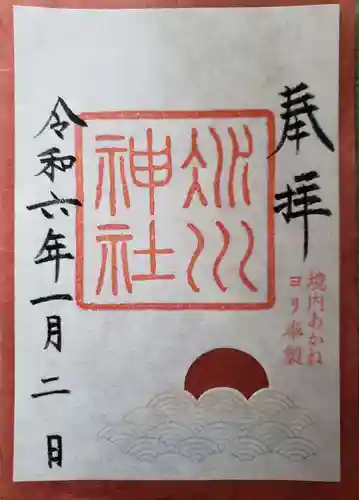 奉拝
境内あかね
ヨリ奉製
氷川
神社
令和六年一月二日